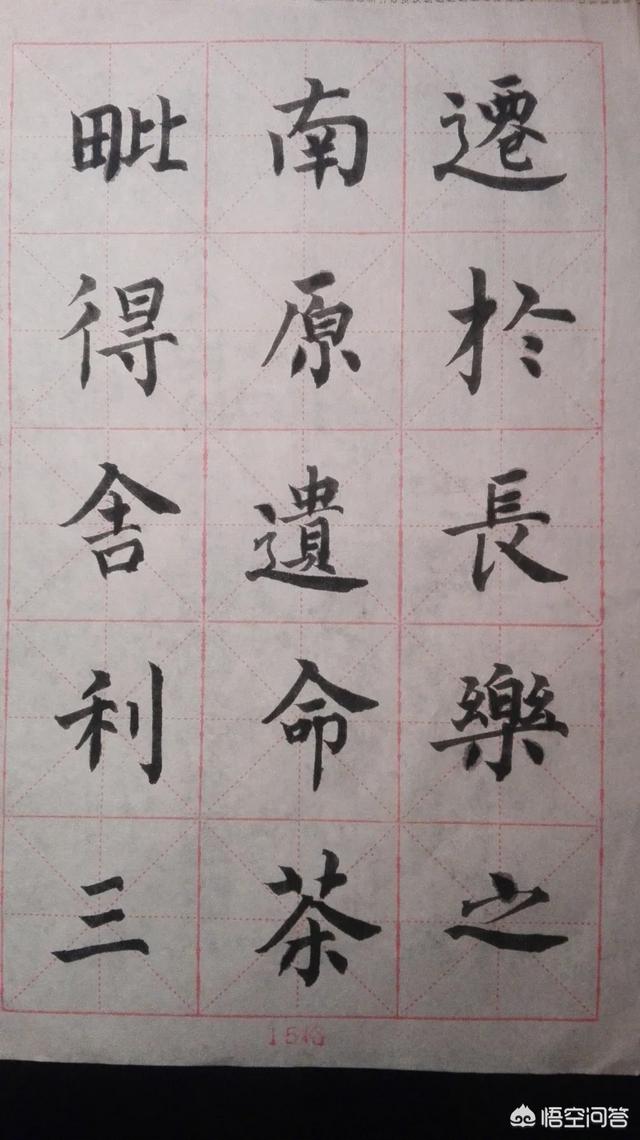 遷於長樂之
南原遺命茶
毗得舍利三
15格
悟空问答